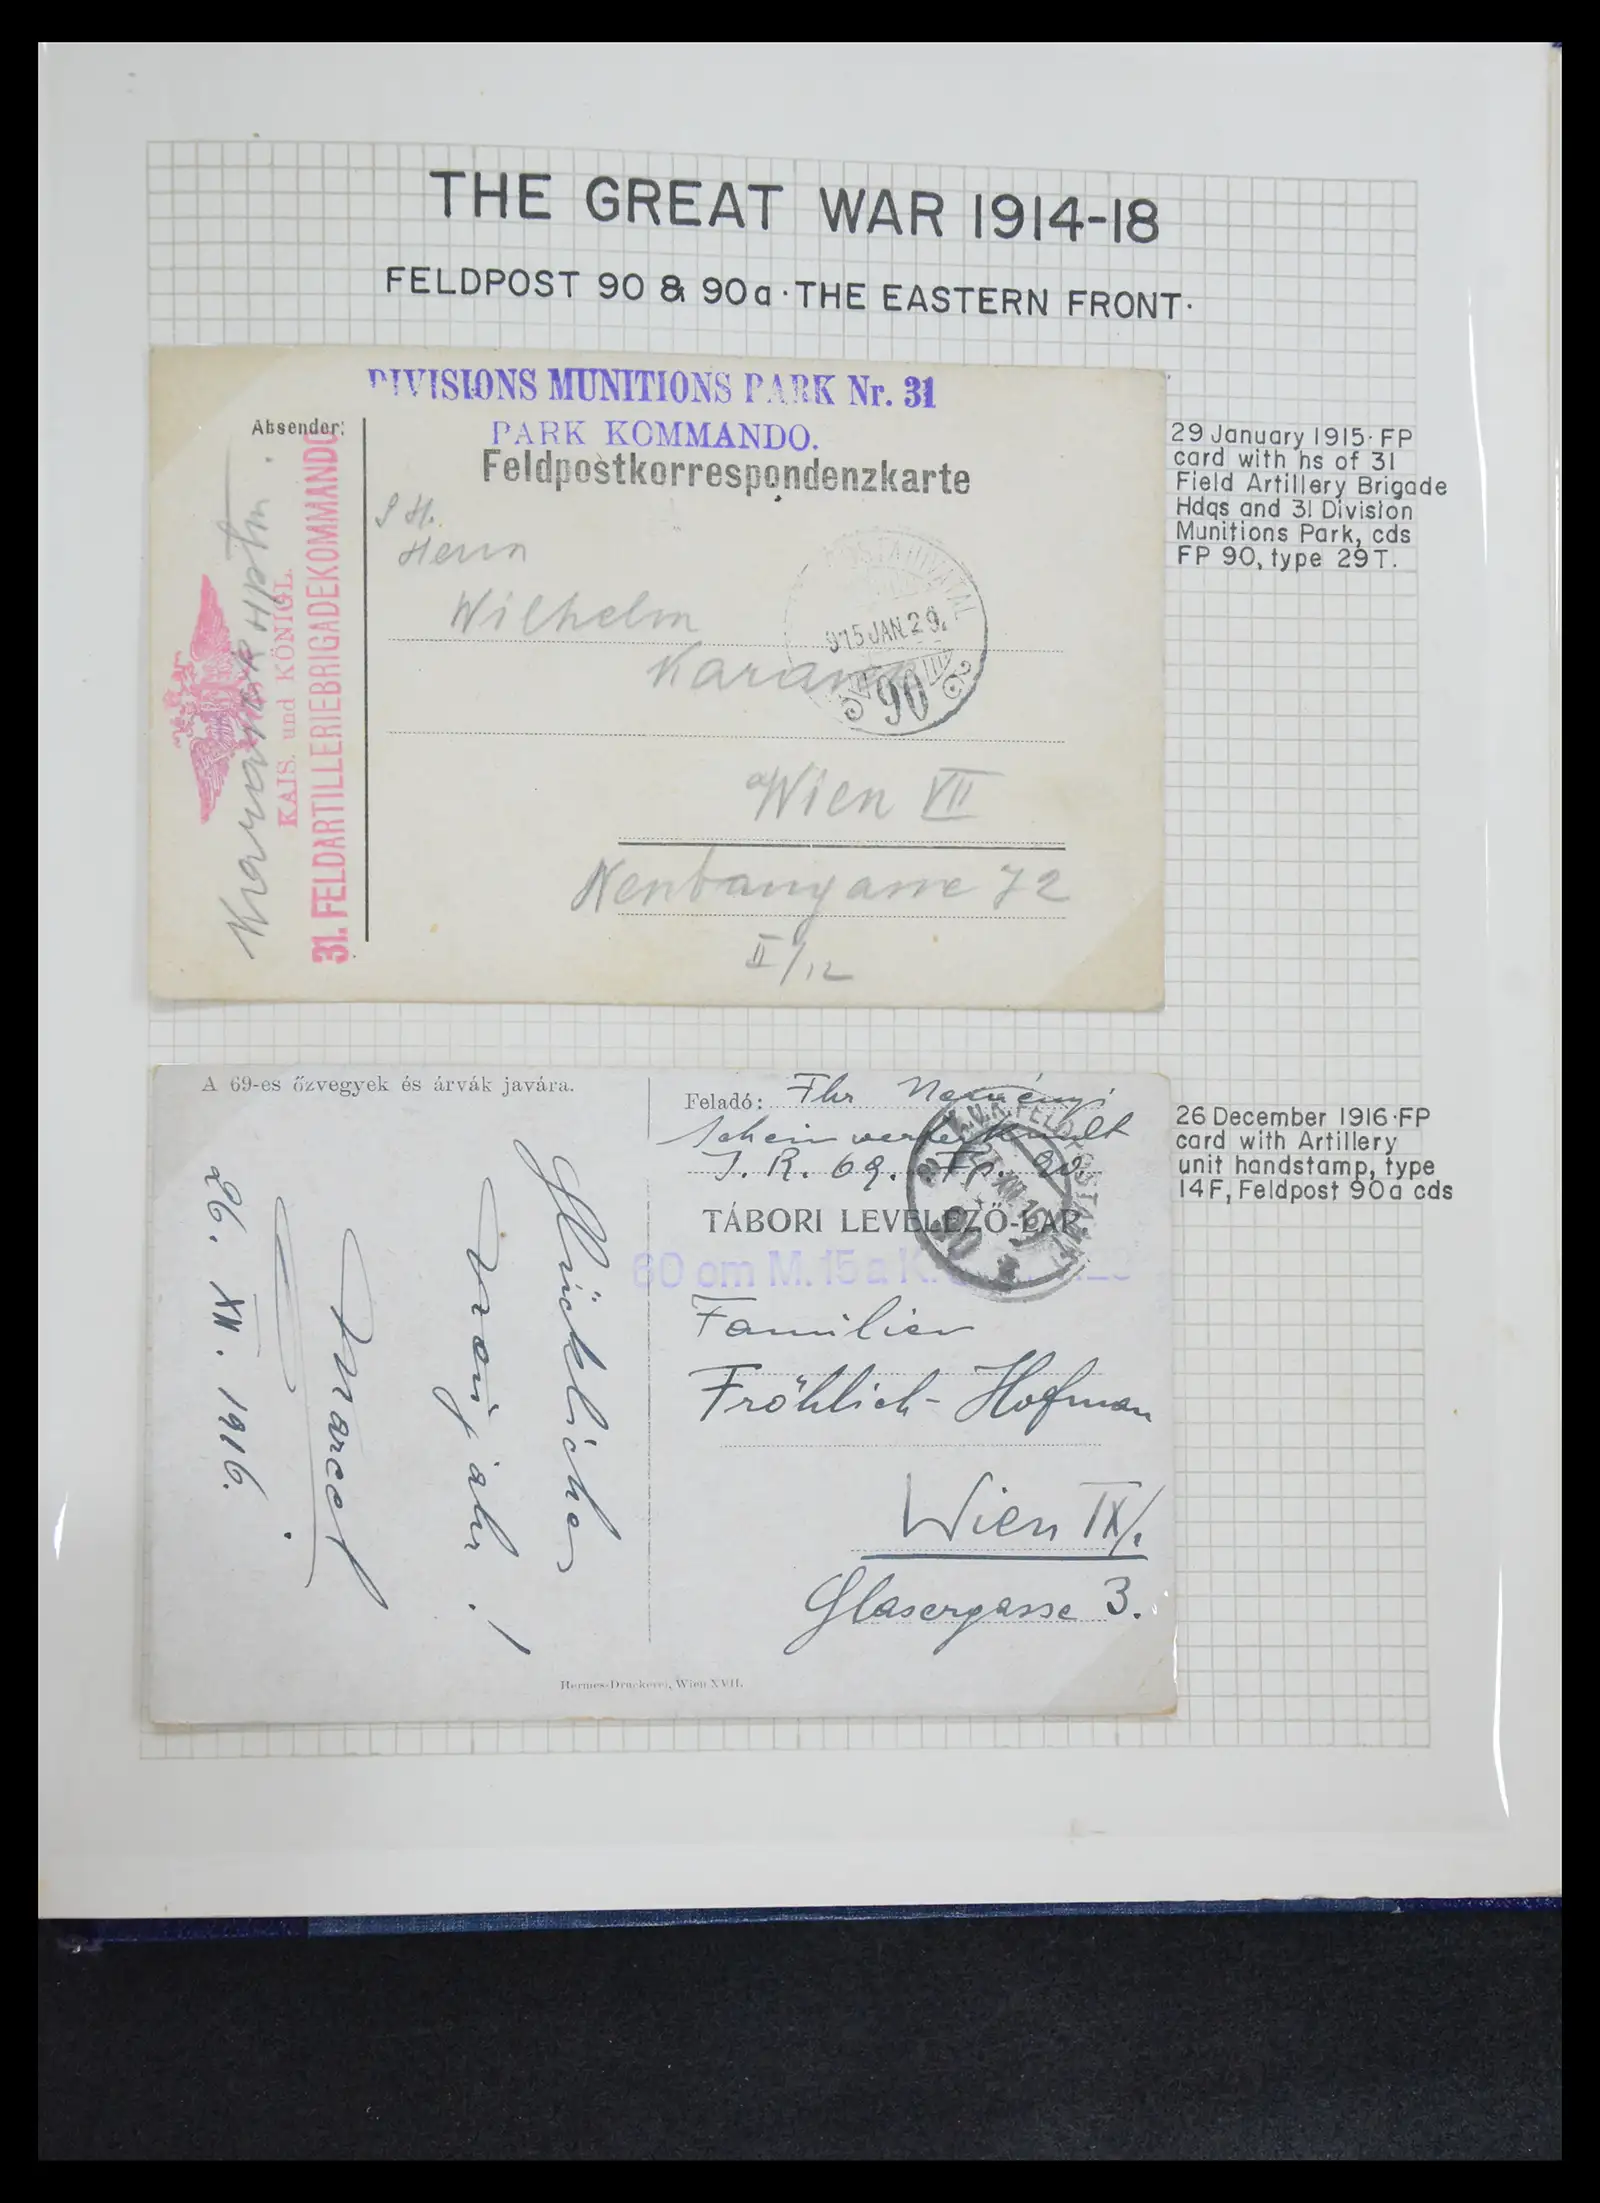 THE GREAT WAR 1914-18
FELDPOST 90 & 90a · THE EASTERN FRONT ·
DIVISIONS MUNITIONS PARK Nr. 31
PARK KOMMANDO.
Feldpostkorrespondenzkarte
Absender:
KAIS. und KÖNIGL.
31. FELDARTILLERIEBRIGADEKOMMANDO
Herrn
Wilhelm
Wien VII
Neubaugasse 72
II/12
915 JAN. 29.
90
29 January 1915 · FP
card with hs of 31
Field Artillery Brigade
Hdqs and 31 Division
Munitions Park, cds
FP 90, type 29T.
A 69-es őzvegyek és árvák javára.
Glückliches
Neujahr!
Marcel
26. XII. 1916.
Feladó: Fhr Neményi
I. R. 69. Fp. 90.
TÁBORI LEVELEZŐ-LAP.
K.U.K. FELDPOSTAMT
90
Familien
Fröhlich-Hofman
Wien IX/.
Glasergasse 3.
Hermes-Druckerei, Wien XVII.
26 December 1916 · FP
card with Artillery
unit handstamp, type
14F, Feldpost 90a cds